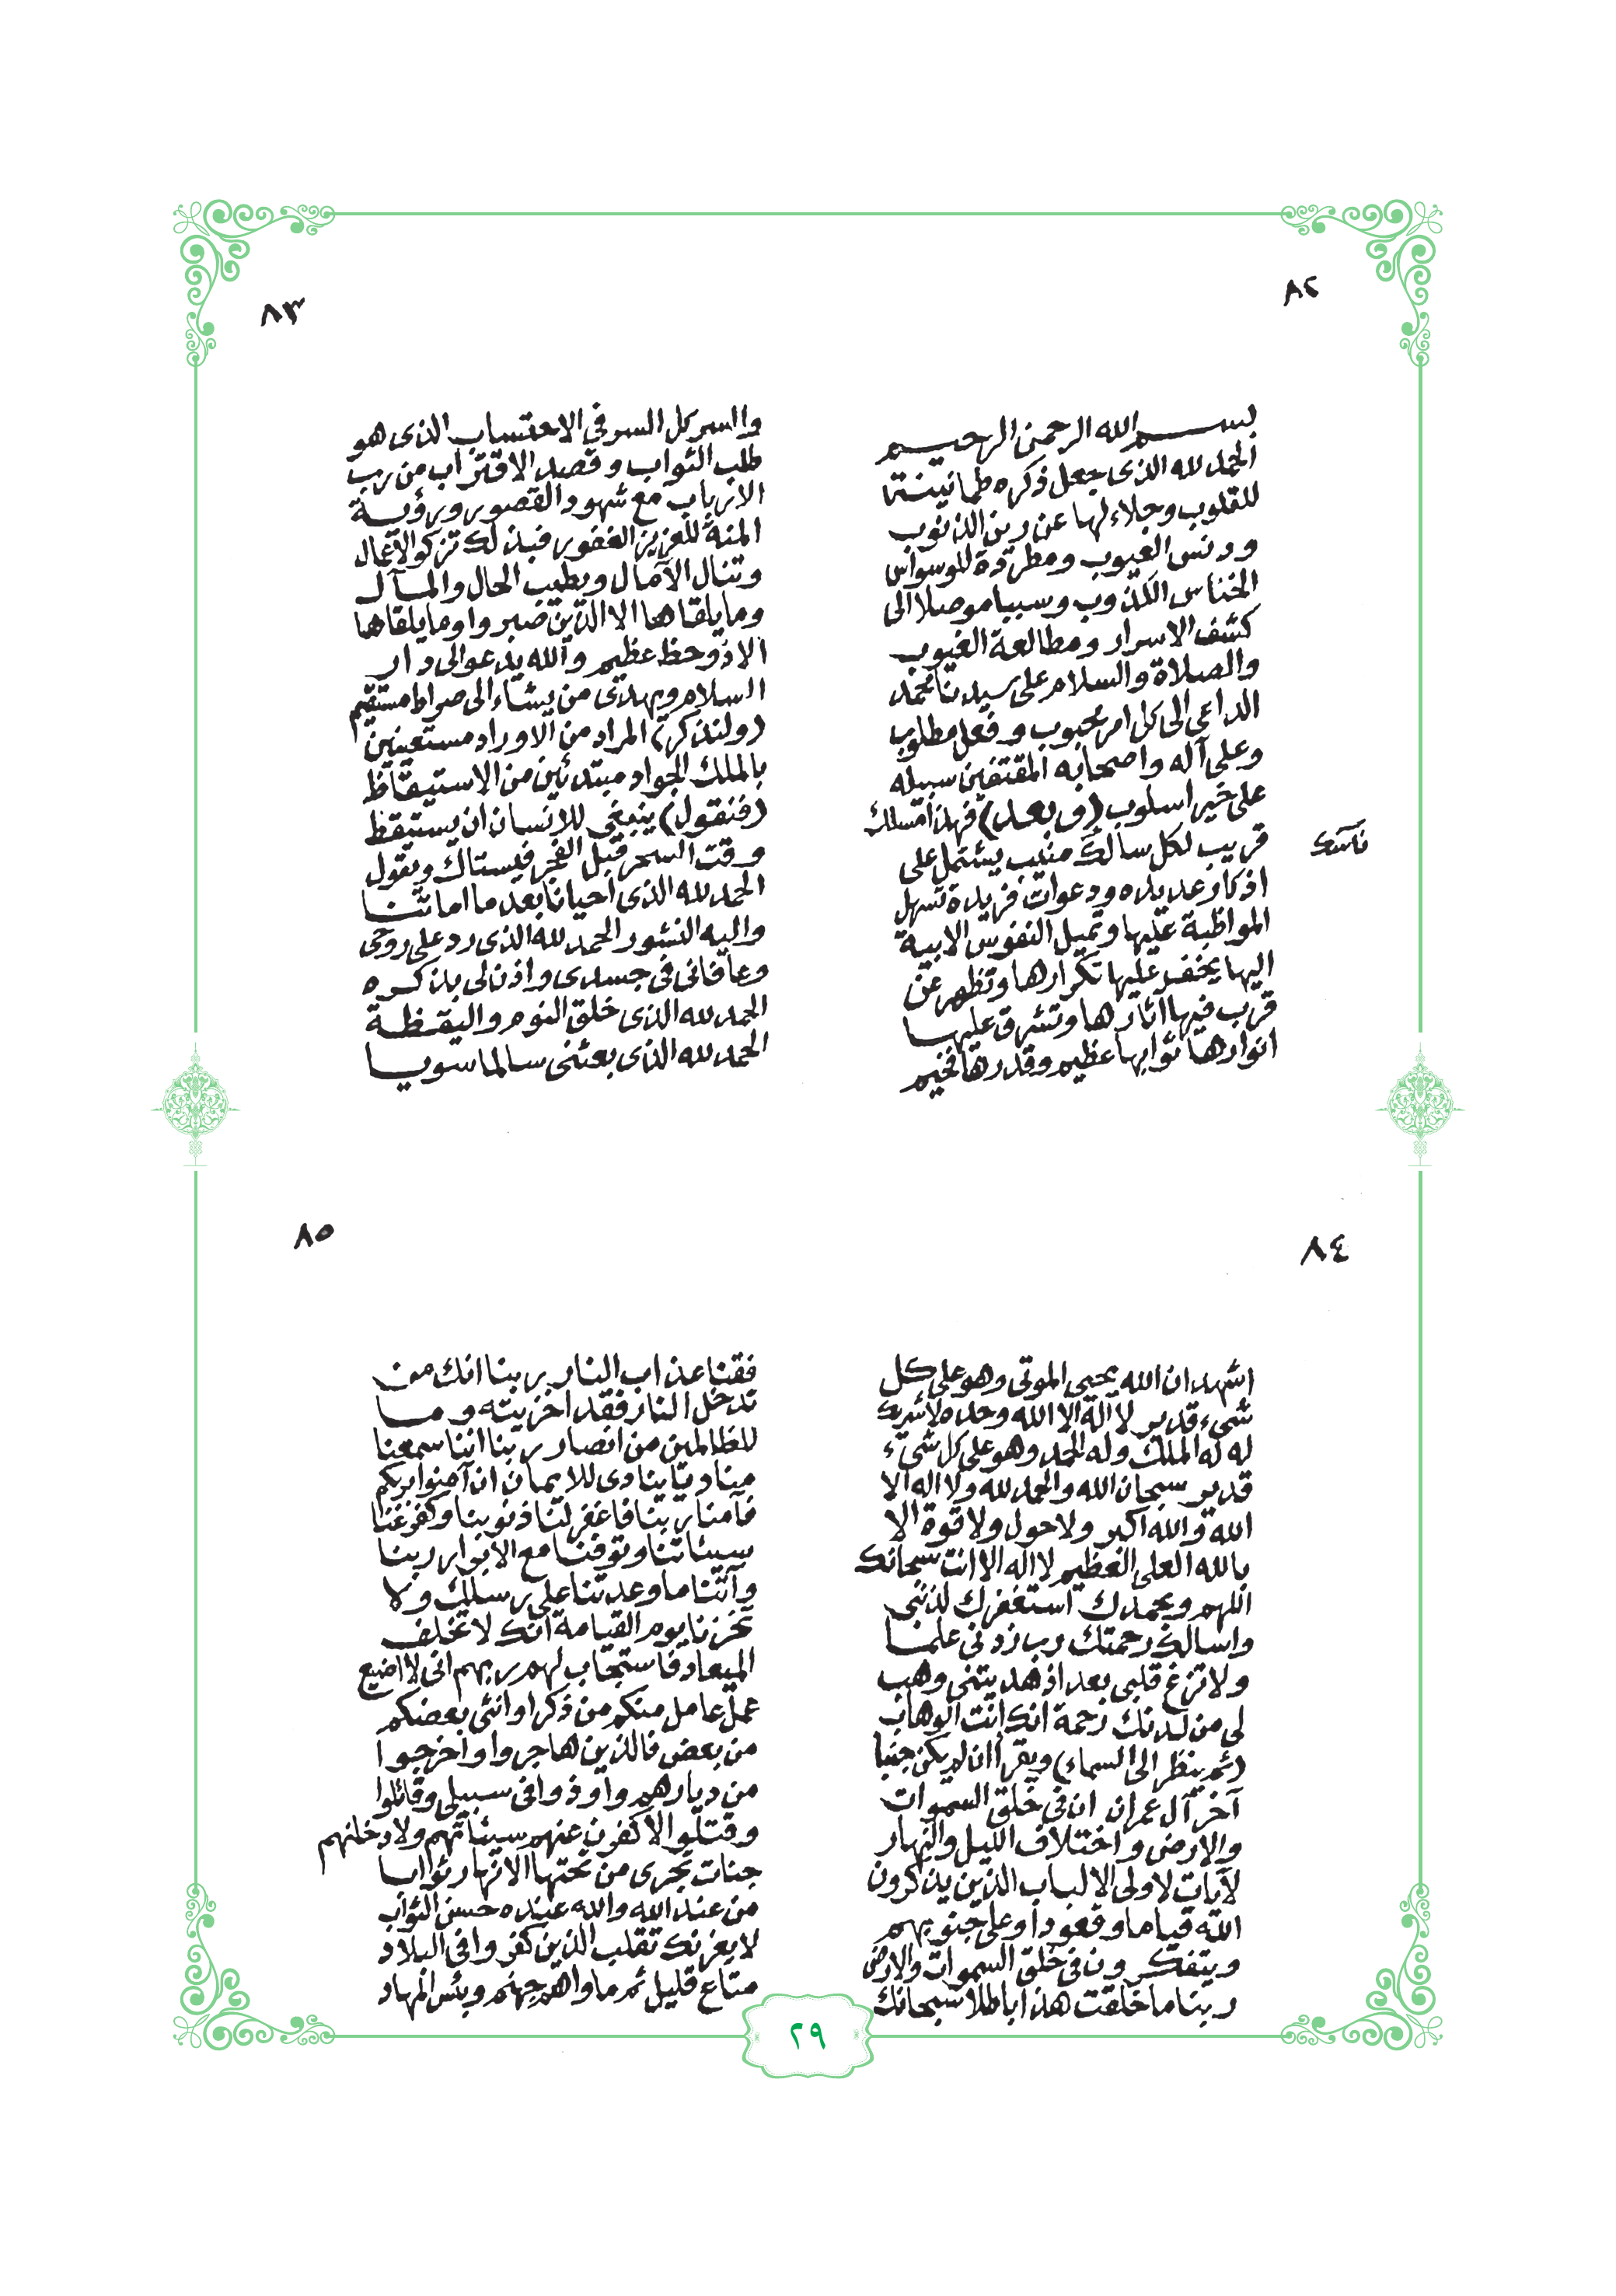 ٨٢
بسم الله الرحمن الرحيم
الحمد لله الذى جعل ذكره طمانينة
للقلوب وجلاء لها عن رين الذنوب
ودنس العيوب ومطردة للوسواس
الخناس الكذوب وسببا موصلا الى
كشف الاسرار ومطالعة الغيوب
والصلاة والسلام على سيدنا محمد
الداعى الى كل امر محبوب وفعل مطلوب
وعلى آله واصحابه المقتفين سبيله
على خير اسلوب (وبعد) فهذا مسلك
قريب لكل سالك منيب يشتمل على
اذكار عديده ودعوات فريدة تسهل
المواظبة عليها وتميل النفوس الابية
اليها يخف عليها تكرارها وتظهر عن
قرب فيها آثارها وتشرق عليها
انوارها ثوابها عظيم وقدرها فخيم
٨٣
والسر كل السر فى الاحتساب الذى هو
طلب الثواب وقصد الاقتراب من رب
الارباب مع شهود القصور ورؤية
المنة للعزيز الغفور فبذلك تزكو الاعمال
وتنال الآمال ويطيب الحال والمآل
وما يلقاها الا الذين صبروا وما يلقاها
الا ذو حظ عظيم والله يدعو الى دار
السلام ويهدى من يشاء الى صراط مستقيم
(ولنذكر) المراد من الاوراد مستعينين
بالملك الجواد مبتدئين من الاستيقاظ
(فنقول) ينبغى للانسان ان يستيقظ
وقت السحر قبل الفجر فيستاك ويقول
الحمد لله الذى احيانا بعد ما اماتنا
واليه النشور الحمد لله الذى رد على روحى
وعافانى فى جسدى واذن لى بذكره
الحمد لله الذى خلق النوم واليقظة
الحمد لله الذى بعثنى سالما سويا
٨٤
اشهد ان الله يحيى الموتى وهو على كل
شىء قدير لا اله الا الله وحده لا شريك
له له الملك وله الحمد وهو على كل شىء
قدير سبحان الله والحمد لله ولا اله الا
الله والله اكبر ولا حول ولا قوة الا
بالله العلى العظيم لا اله الا انت سبحانك
اللهم وبحمدك استغفرك لذنبى
واسالك رحمتك رب زدنى علما
ولا تزغ قلبى بعد اذ هديتنى وهب
لى من لدنك رحمة انك انت الوهاب
(ثم ينظر الى السماء) ويقرأ ان لم يكن جنبا
آخر آل عمران ان فى خلق السموات
والارض واختلاف الليل والنهار
لآيات لاولى الالباب الذين يذكرون
الله قياما وقعودا وعلى جنوبهم
ويتفكرون فى خلق السموات والارض
ربنا ما خلقت هذا باطلا سبحانك
٨٥
فقنا عذاب النار ربنا انك من
تدخل النار فقد اخزيته وما
للظالمين من انصار ربنا اننا سمعنا
مناديا ينادى للايمان ان آمنوا بربكم
فآمنا ربنا فاغفر لنا ذنوبنا وكفر عنا
سيئاتنا وتوفنا مع الابرار ربنا
وآتنا ما وعدتنا على رسلك ولا
تخزنا يوم القيامة انك لا تخلف
الميعاد فاستجاب لهم ربهم انى لا اضيع
عمل عامل منكم من ذكر او انثى بعضكم
من بعض فالذين هاجروا واخرجوا
من ديارهم واوذوا فى سبيلى وقاتلوا
وقتلوا لاكفرن عنهم سيئاتهم ولادخلنهم
جنات تجرى من تحتها الانهار ثوابا
من عند الله والله عنده حسن الثواب
لا يغرنك تقلب الذين كفروا فى البلاد
متاع قليل ثم ماواهم جهنم وبئس المهاد
٢٩